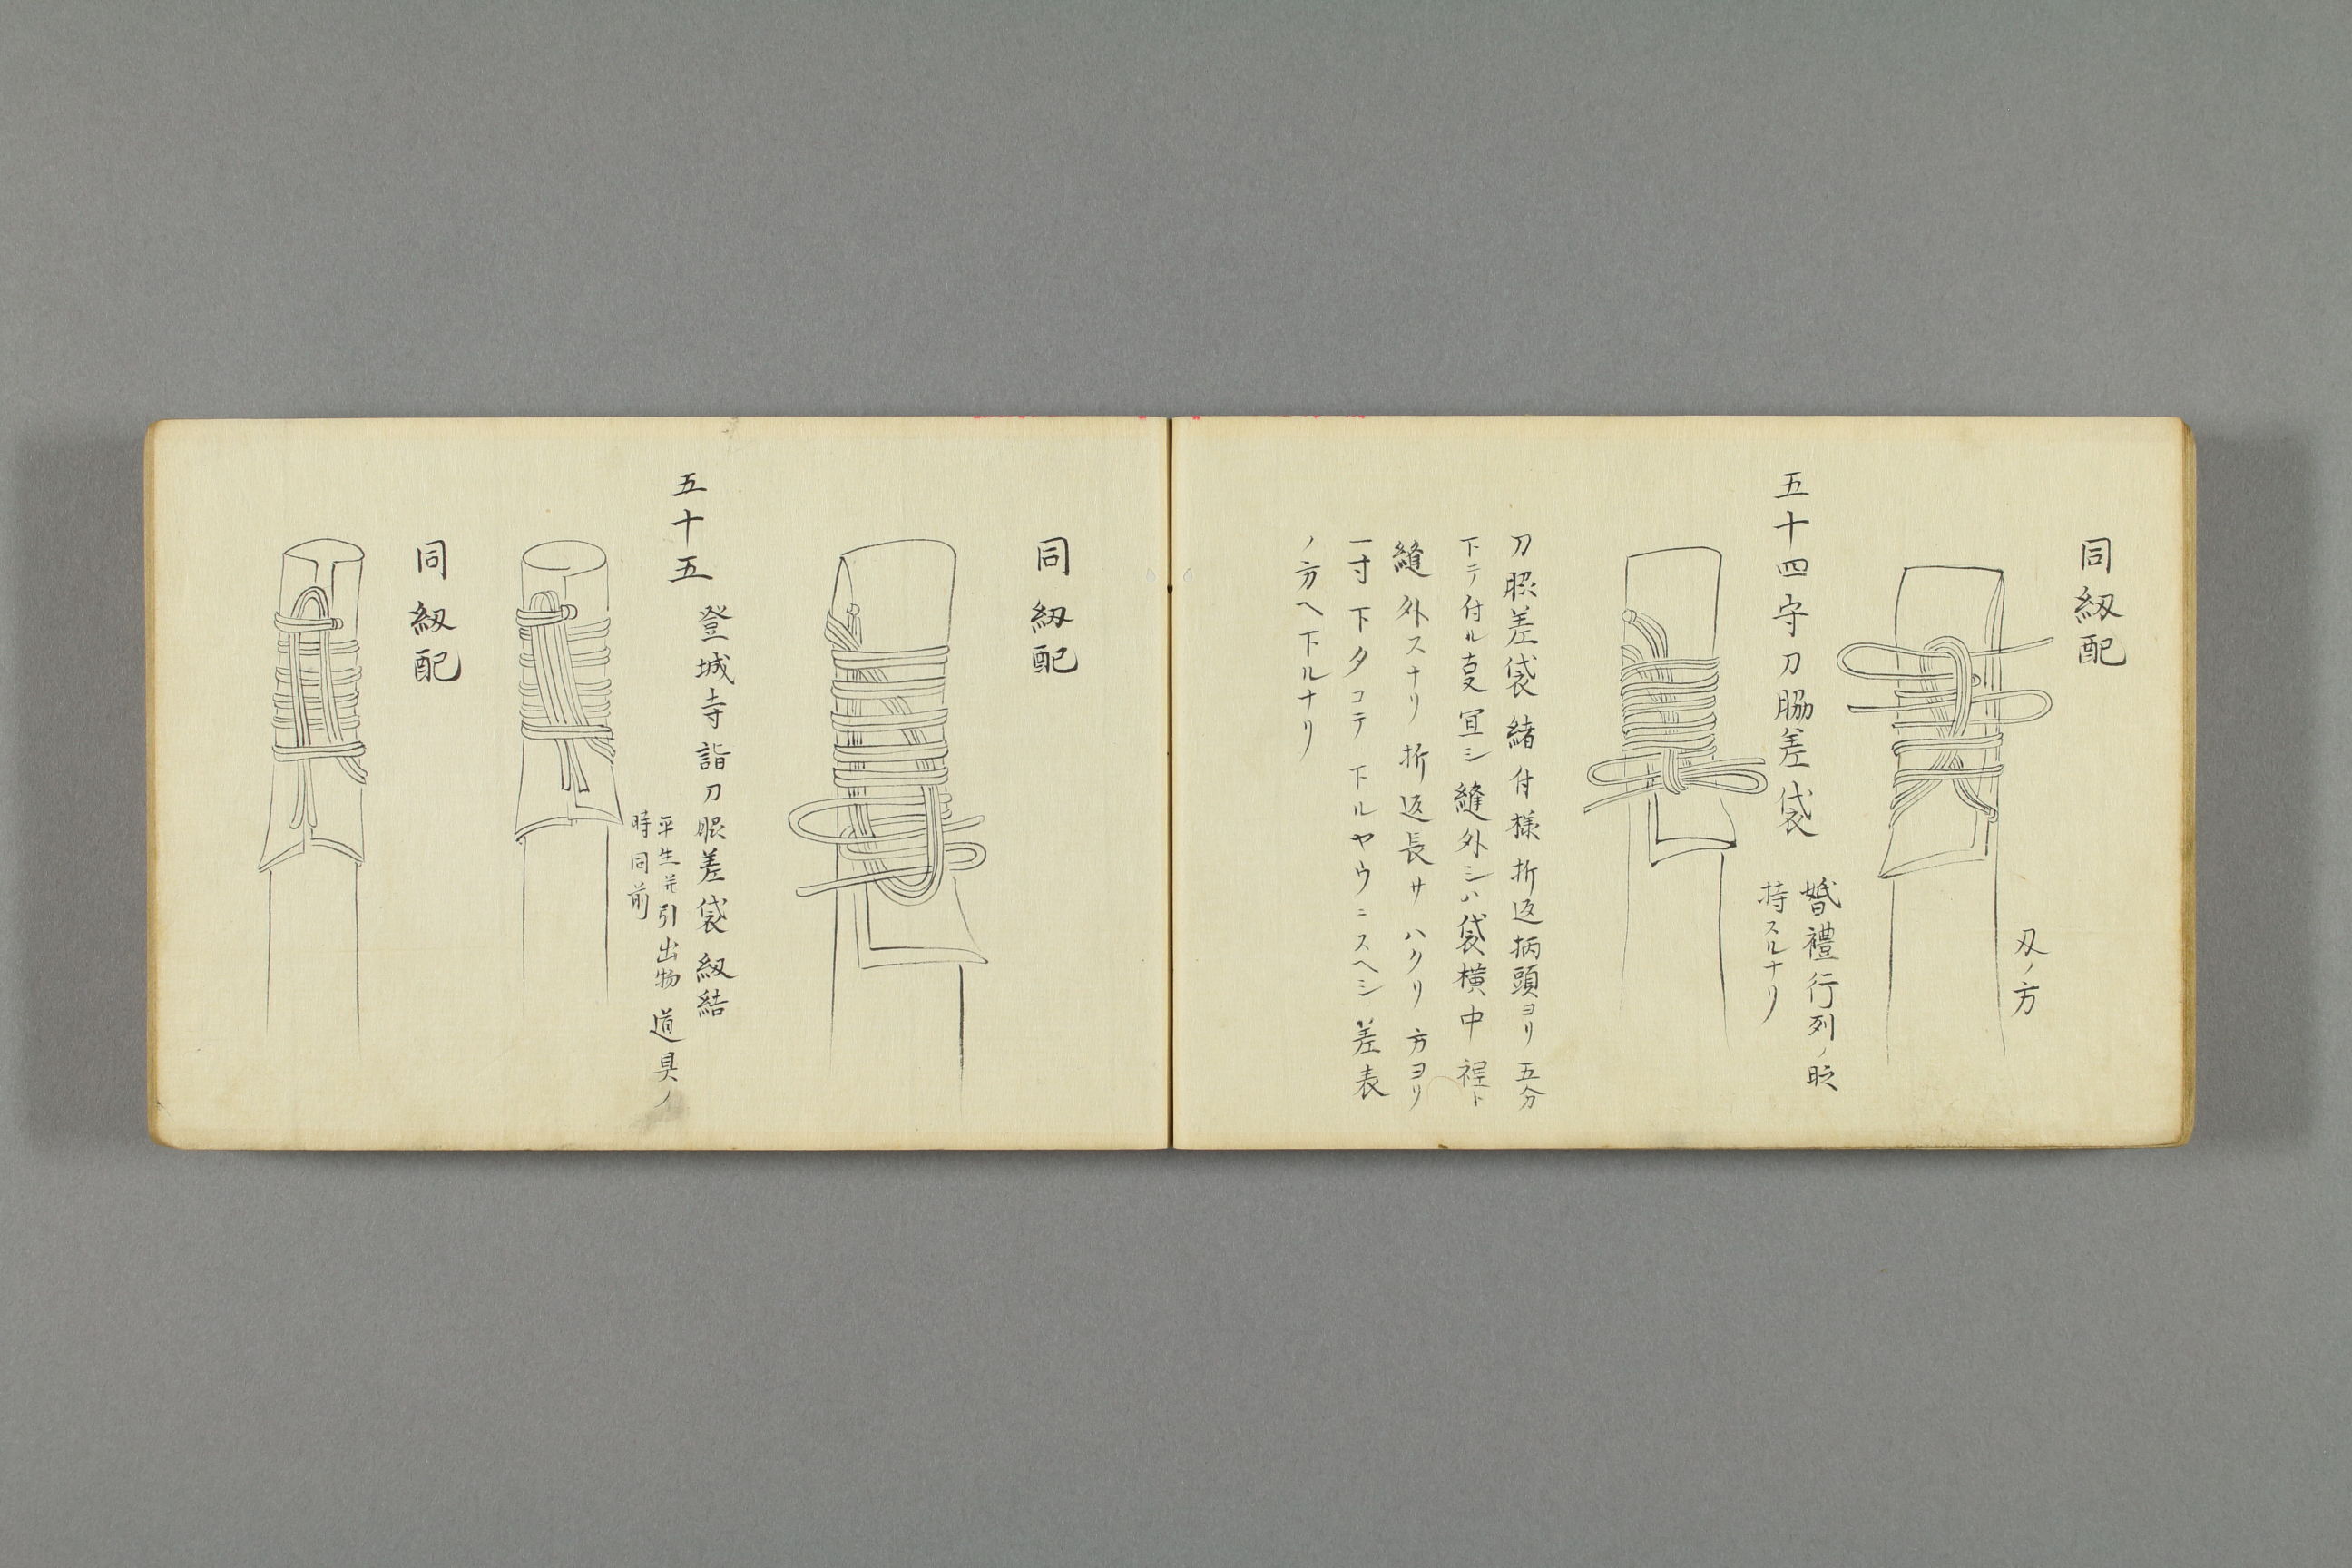 同紐配
刄ノ方
五十四守刀脇差袋
婚禮行列ノ時
持スルナリ
刀脇差袋緒付様折返柄頭ヨリ五分
下テ付ル㕝冝シ縫外シハ袋横中程ト
縫外スナリ折返長サハクリ方ヨリ
一寸下タコテ下ルヤウニスヘシ差表
ノ方ヘ下ルナリ
同紐配
五十五
登城寺詣刀脇差袋紐結
平生并引出物道具ノ
時同前
同紐配